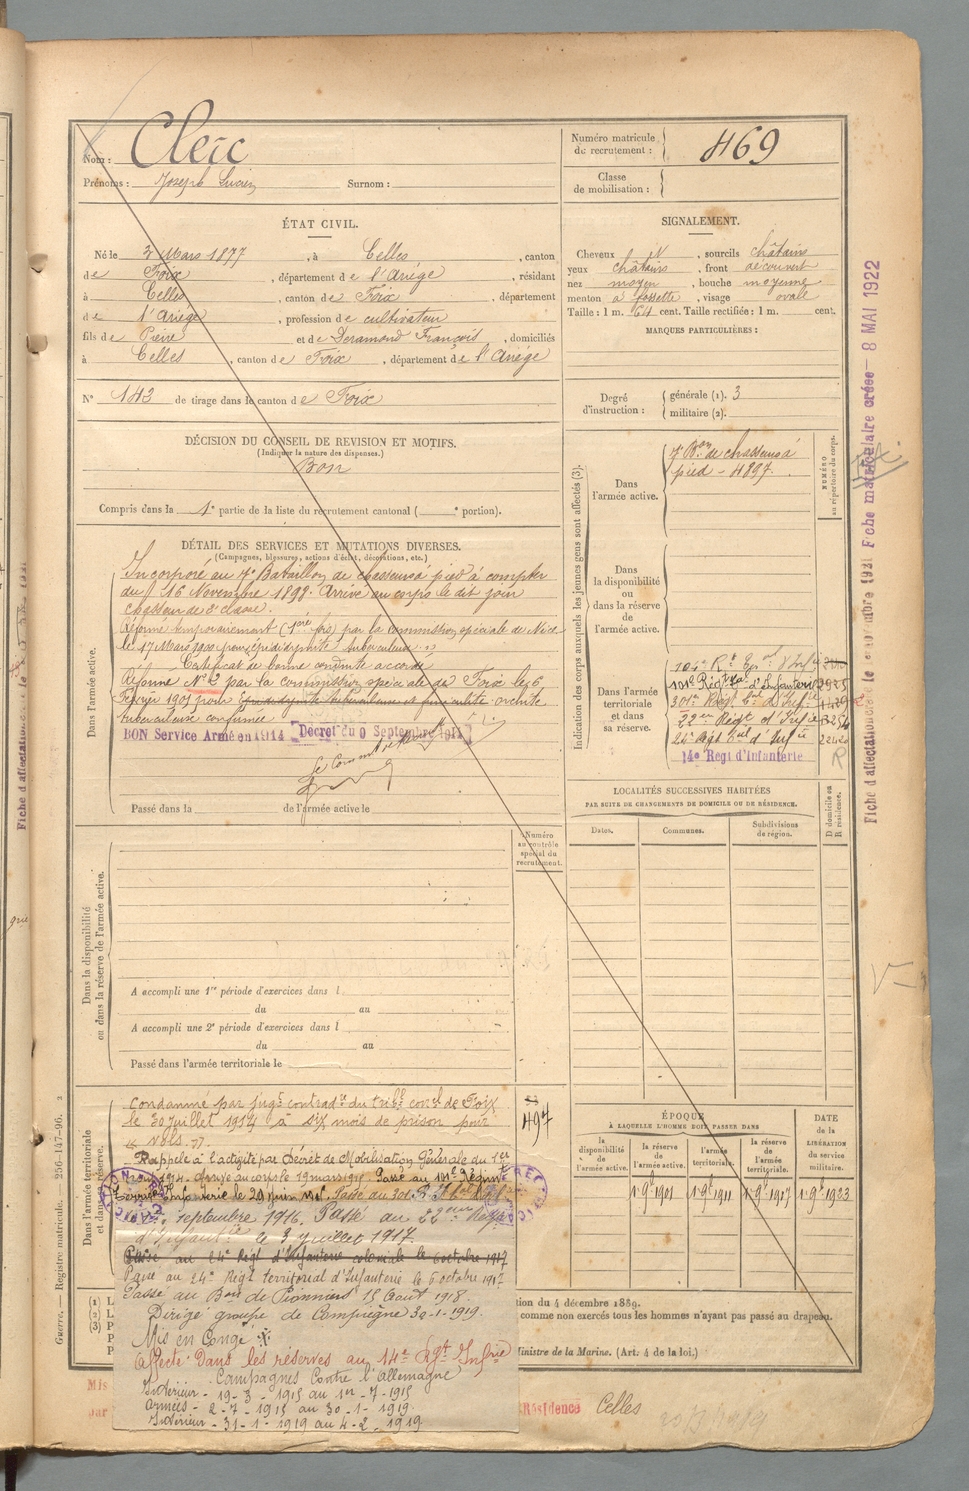 Nom : Cleic
Prénoms : Joseph Lucien Surnom :
Numéro matricule de recrutement : 469
Classe de mobilisation :
ÉTAT CIVIL.
Né le 3 Mars 1877, à Celles, canton
de Foix, département de l'Ariège, résidant
à Celles, canton de Foix, département
de l'Ariège, profession de cultivateur
fils de Pierre et de Deramond François, domiciliés
à Celles, canton de Foix, département de l'Ariège
N° 143 de tirage dans le canton de Foix
SIGNALEMENT.
Cheveux, sourcils châtains
yeux châtains, front découvert
nez moyen, bouche moyenne
menton à fossette, visage ovale
Taille : 1 m. 64 cent. Taille rectifiée : 1 m. cent.
MARQUES PARTICULIÈRES :
Degré d'instruction : générale (1). 3
militaire (2).
DÉCISION DU CONSEIL DE REVISION ET MOTIFS.
(Indiquer la nature des dispenses.)
Bon
Compris dans la 1e partie de la liste du recrutement cantonal ( e portion).
DÉTAIL DES SERVICES ET MUTATIONS DIVERSES.
(Campagnes, blessures, actions d'éclat, décorations, etc.)
Dans l'armée active.
Incorporé au 7e Bataillon de chasseurs à pied à compter
du 16 Novembre 1898. Arrivé au corps le dit jour
chasseur de 2e classe.
Réformé temporairement (1ère fois) par la commission spéciale de Nice
le 17 Mars 1900 pour épididymite tuberculeuse
Certificat de bonne conduite accordé
Réformé N° 2 par la commission spéciale de Foix le 6
Février 1901 pour orchite
tuberculeuse confirmée
BON Service Armé en 1914 Décret du 9 Septembre 1914
Passé dans la de l'armée active le
Indication des corps auxquels les jeunes gens sont affectés (3).
NUMÉRO au répertoire du corps.
Dans l'armée active.
7e Bon de chasseurs à
pied - 4897.
Dans la disponibilité ou dans la réserve de l'armée active.
Dans l'armée territoriale et dans sa réserve.
22er Régt d'Infie
14e Regt d'Infanterie
LOCALITÉS SUCCESSIVES HABITÉES
PAR SUITE DE CHANGEMENTS DE DOMICILE OU DE RÉSIDENCE.
Dates. Communes. Subdivisions de région. D domicile ou R résidence.
Numéro au contrôle spécial du recrutement.
Dans la disponibilité ou dans la réserve de l'armée active.
A accompli une 1re période d'exercices dans l
du au
A accompli une 2e période d'exercices dans l
du au
Passé dans l'armée territoriale le
Dans l'armée territoriale et dans sa réserve.
Condamné par jugt contradre du tribl corrl de Foix
le 30 Juillet 1904 à six mois de prison pour
« Vols. »
497
Rappelé à l'activité par Décret de Mobilisation Générale du 1er
Août 1914. Arrivé au corps le 19 mars 1915. Passé au 101e Régiment
septembre 1916. Passé au 22eme Régt
d'Infantie le 3 Juillet 1917.
Passé au 24e Régt d'Infanterie coloniale le 6 octobre 1917
Passé au 24e Régt territorial d'Infanterie le 6 octobre 1917
Passé au Bon de Pionniers 15 Août 1918.
Dirigé groupe de Compiègne 30-1-1919.
Mis en Congé
Affecté dans les réserves au 14e Rgt Infrie
Campagnes Contre l'Allemagne
Intérieur - 19-3-1915 au 1er-7-1915
Armées - 2-7-1915 au 30-1-1919
Intérieur - 31-1-1919 au 4-2-1919
ÉPOQUE
À LAQUELLE L'HOMME DOIT PASSER DANS
la disponibilité de l'armée active. la réserve de l'armée active. l'armée territoriale. la réserve de l'armée territoriale.
DATE de la LIBÉRATION du service militaire.
1-9bre 1901 1-9bre 1911 1-9bre 1917 1-9bre 1923
tion du 4 décembre 1889.
comme non exercés tous les hommes n'ayant pas passé au drapeau.
Ministre de la Marine. (Art. 4 de la loi.)
Mis
par
Résidence Celles
Guerre. — Registre matricule. — 256-147-96.
Fiche matriculaire créée - 8 MAI 1922